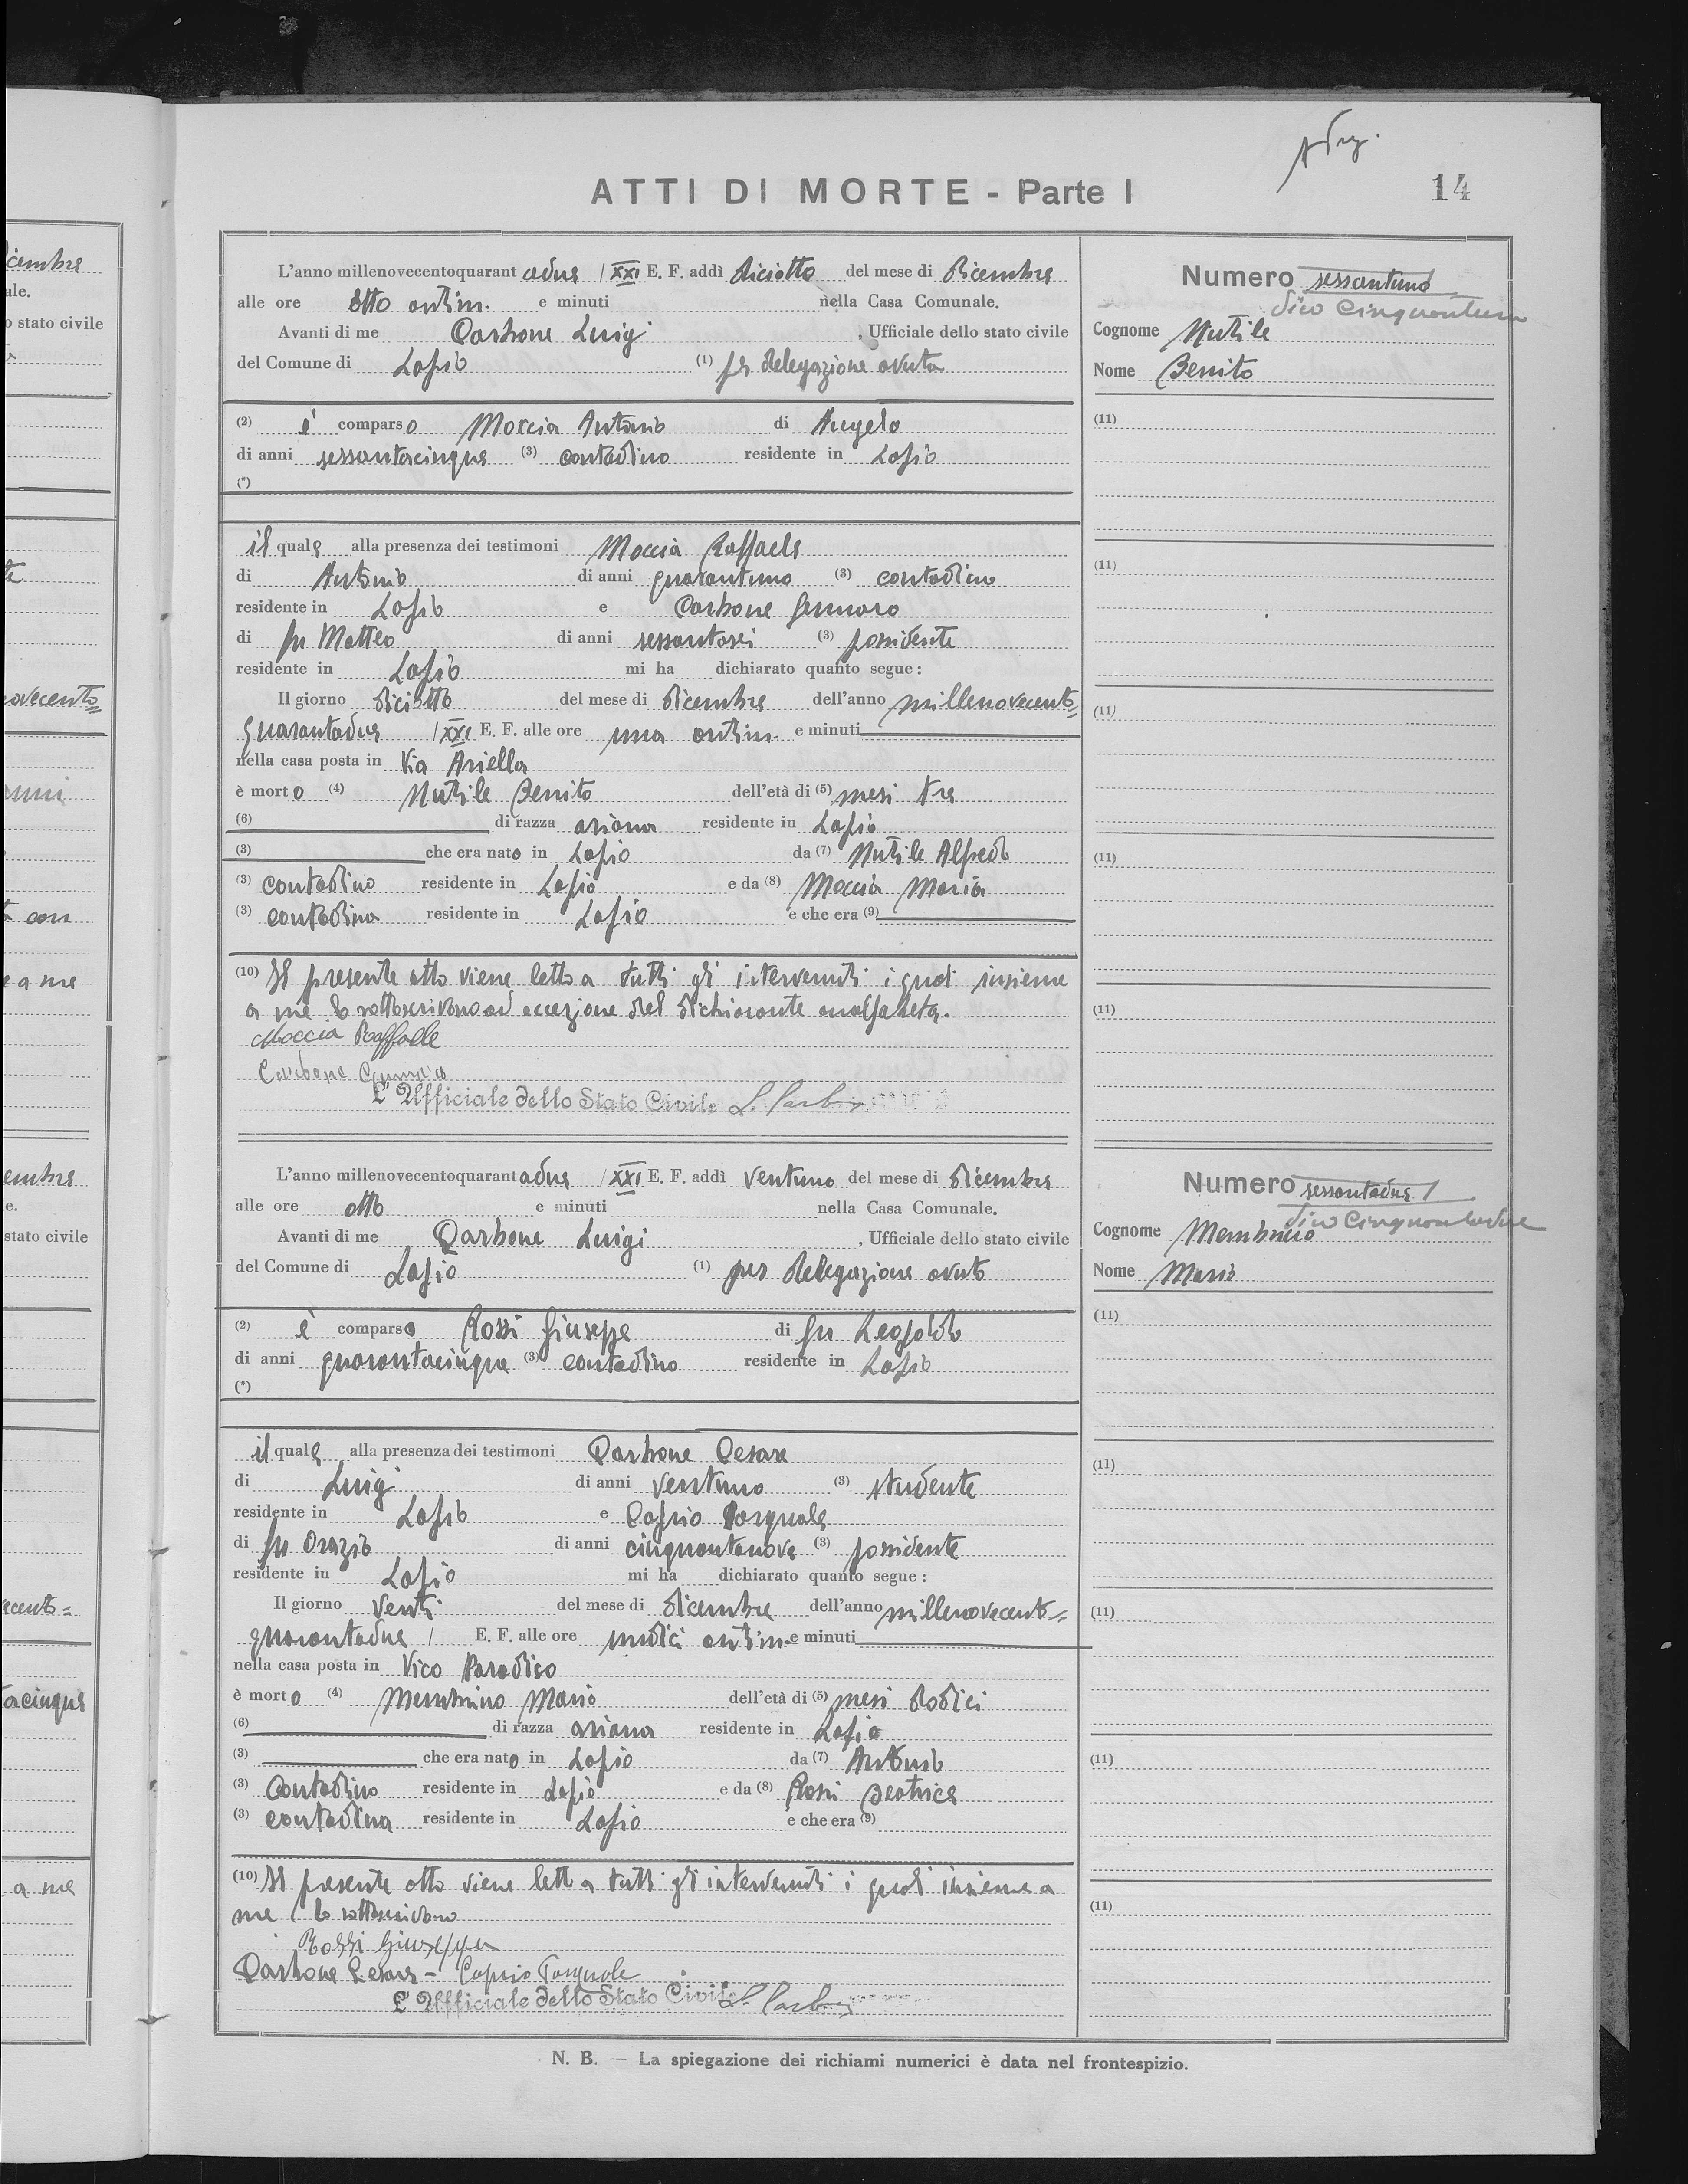 Adry.
ATTI DI MORTE - Parte I
14
L'anno millenovecentoquarant adue / XXI E. F. addì diciotto del mese di Dicembre
alle ore otto antim. e minuti nella Casa Comunale.
Avanti di me Carbone Luigi , Ufficiale dello stato civile
del Comune di Lapio (1) per delegazione avuta
(2) è comparso Moccia Antonio di Angelo
di anni sessantacinque (3) contadino residente in Lapio
(*)
il quale alla presenza dei testimoni Moccia Raffaele
di Antonio di anni quarantuno (3) contadino
residente in Lapio e Carbone Gennaro
di fu Matteo di anni sessantasei (3) possidente
residente in Lapio mi ha dichiarato quanto segue :
Il giorno diciotto del mese di dicembre dell'anno millenovecento=
quarantadue / XXI E. F. alle ore una antim. e minuti
nella casa posta in Via Ariella
è morto (4) Nutile Benito dell'età di (5) mesi tre
(6) di razza ariana residente in Lapio
(3) che era nato in Lapio da (7) Nutile Alfredo
(3) contadino residente in Lapio e da (8) Moccia Maria
(3) contadina residente in Lapio e che era (9)
(10) Il presente atto viene letto a tutti gli intervenuti i quali insieme
a me lo sottoscrivono ad eccezione del dichiarante analfabeta.
Moccia Raffaele
Carbone Gennaro
L'Ufficiale dello Stato Civile L. Carbone
Numero sessantuno
dico Cinquantuno
Cognome Nutile
Nome Benito
(11)
(11)
(11)
(11)
(11)
L'anno millenovecentoquarant adue / XXI E. F. addì ventuno del mese di dicembre
alle ore otto e minuti nella Casa Comunale.
Avanti di me Carbone Luigi , Ufficiale dello stato civile
del Comune di Lapio (1) per delegazione avuta
(2) è comparso Rossi Giuseppe di fu Leopoldo
di anni quarantacinque (3) contadino residente in Lapio
(*)
il quale alla presenza dei testimoni Carbone Cesare
di Luigi di anni ventuno (3) studente
residente in Lapio e Caprio Pasquale
di fu Orazio di anni cinquantanove (3) possidente
residente in Lapio mi ha dichiarato quanto segue :
Il giorno venti del mese di dicembre dell'anno millenovecento=
quarantadue / E. F. alle ore undici antim. e minuti
nella casa posta in Vico Paradiso
è morto (4) Membrino Mario dell'età di (5) mesi dodici
(6) di razza ariana residente in Lapio
(3) che era nato in Lapio da (7) Antonio
(3) contadino residente in Lapio e da (8) Rossi Beatrice
(3) contadina residente in Lapio e che era (9)
(10) Il presente atto viene letto a tutti gli intervenuti i quali insieme a
me lo sottoscrivono
Rossi Giuseppe
Carbone Cesare - Caprio Pasquale
L'Ufficiale dello Stato Civile L. Carbone
Numero sessantadue /
dico Cinquantadue
Cognome Membrino
Nome Mario
(11)
(11)
(11)
(11)
(11)
N. B. — La spiegazione dei richiami numerici è data nel frontespizio.
icembre
ale.
o stato civile
ovecento=
con
e a me
embre
e.
stato civile
ecento=
tacinque
a me